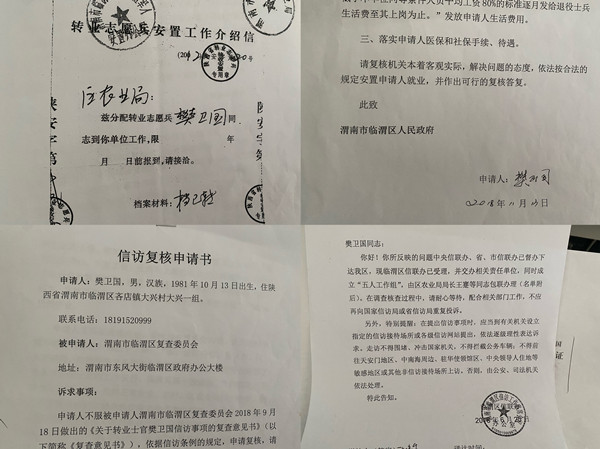 转业志愿兵安置工作介绍信
区农业局:
兹分配转业志愿兵樊卫国同
志到你单位工作,限 年
月 日前报到,请接洽。
档案材料:
生活费至其上岗为止。”发放申请人生活费用。
三、落实申请人医保和社保手续、待遇。
请复核机关本着客观实际,解决问题的态度,依法按合法的
规定安置申请人就业,并作出可行的复核答复。
此致
渭南市临渭区人民政府
申请人:
2018年11月13日
信访复核申请书
申请人:樊卫国,男,汉族,1981年10月13日出生,住陕
西省渭南市临渭区吝店镇大兴村大兴一组。
联系电话:18191520999
被申请人:渭南市临渭区复查委员会
地址:渭南市东风大街临渭区政府办公大楼
诉求事项:
申请人不服被申请人渭南市临渭区复查委员会2018年9月
18日做出的《关于转业士官樊卫国信访事项的复查意见书》(以
下简称《复查意见书》),依据信访条例的规定,申请复核,请
樊卫国同志:
你好!你所反映的问题中央信联办、省、市信联办已督办下
达我区,现临渭区信联办已受理,并交办相关责任单位,同时成
立“五人工作组”,由区农业局局长王蹇等同志包联办理(名单附
后)、在调查核查过程中,请耐心等待,配合相关部门工作,不应
再向国家信访局或省信访局重复投诉。
另外,特别提醒:在提出信访事项时,应当到有关机关设立
指定的信访接待场所或各级信访网站提出,依法逐级理性表达诉
求。走访不得围堵、冲击国家机关,不得拦截公务车辆;不得前
往天安门地区、中南海周边、驻华使领馆区、中央领导人住地等
敏感地区或其他非信访接待场所上访。否则,由公安、司法机关
依法处理。
特此告知。